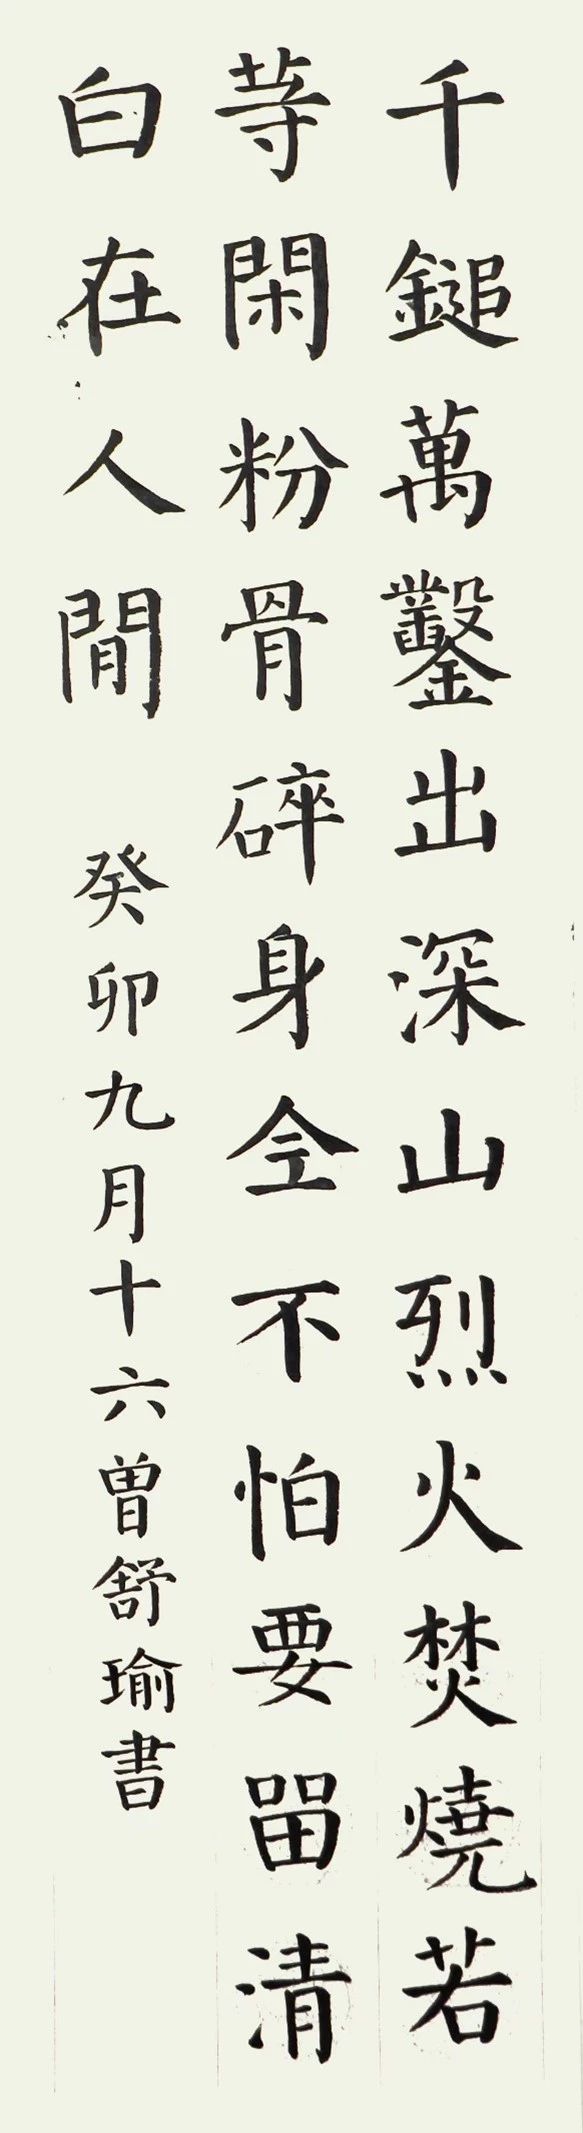 千鎚萬鑿出深山烈火焚燒若
等閑粉骨碎身全不怕要留清
白在人間 癸卯九月十六曾舒瑜書